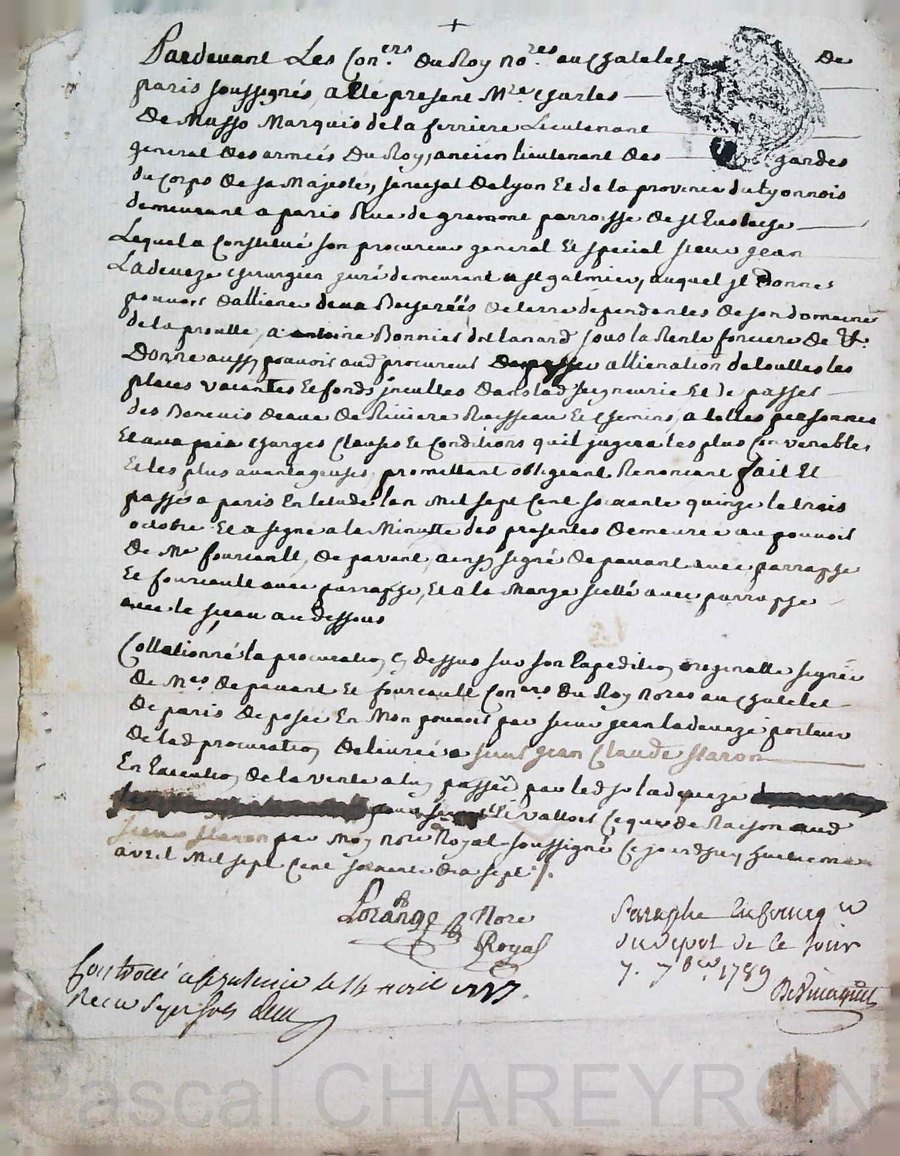 Pardevant Les Con.ers du Roy no.res au chatelet de
paris soussignés, a eté present M.re charles
De Musso Marquis de la ferriere Lieutenant
general des armées du Roy, ancien lieutenant des gardes
du corps de sa Majesté, senechal de lyon Et de la province du lyonnois
demeurant a paris Rue de gramont parroisse de st Eustache
Lequel a Constitué son procureur general Et special sieur jean
Ladeveze chirurgien juré demeurant a st galmier, auquel jl Donne
pouvoir d'alliener deux de terre dependentes de son domaine
de la proulle, a antoine Bonnier sous la Rente fonciere de
Donne aussy pouvoir aud procureur allienation de touttes les
places vacentes Et fonds jncultes dans lad seigneurie Et de passer
des Benevis d'eaux de Riviere Ruisseau Et chemins, a telles personnes
Et aux prix charges clauses Et Conditions qu'il jugera les plus Convenables
Et les plus avantageuses, promettant obligeant Renoncant fait Et
passé a paris En letude lan Mil sept Cent soixante quinze le trois
octobre Et a signé a la Minutte des presentes demeurée au pouvoir
de Me fourcault, de pavant, ainsy signé de pavant avec parraphe
Et fourcault avec parraphe, Et a la Marge scellé avec parraphe
avec le sceau au dessous
Collationné la procuration cy dessus sur son Expedition originalle signée
de Mes de pavant Et fourcault Con.ers du Roy nores au chatelet
de paris deposée En Mon pouvoir par sieur jean ladeveze porteur
de lad procuration delivrée a sieur jean Claude staron
En Execution de la vente a luy passée par led sr ladeveze
pour servir Et valloir Ce que de Raison aud
sieur staron par Moy nore Royal soussigné Ce jourdhuy huitieme
avril Mil sept Cent soixante dix sept ./.
Lorange Nore
Royal
Paraphé
du depot de ce jour
7. 7bre 1789
Controllé a st galmier le 14 avril 1777.
Recu sols
Pascal CHAREYRON